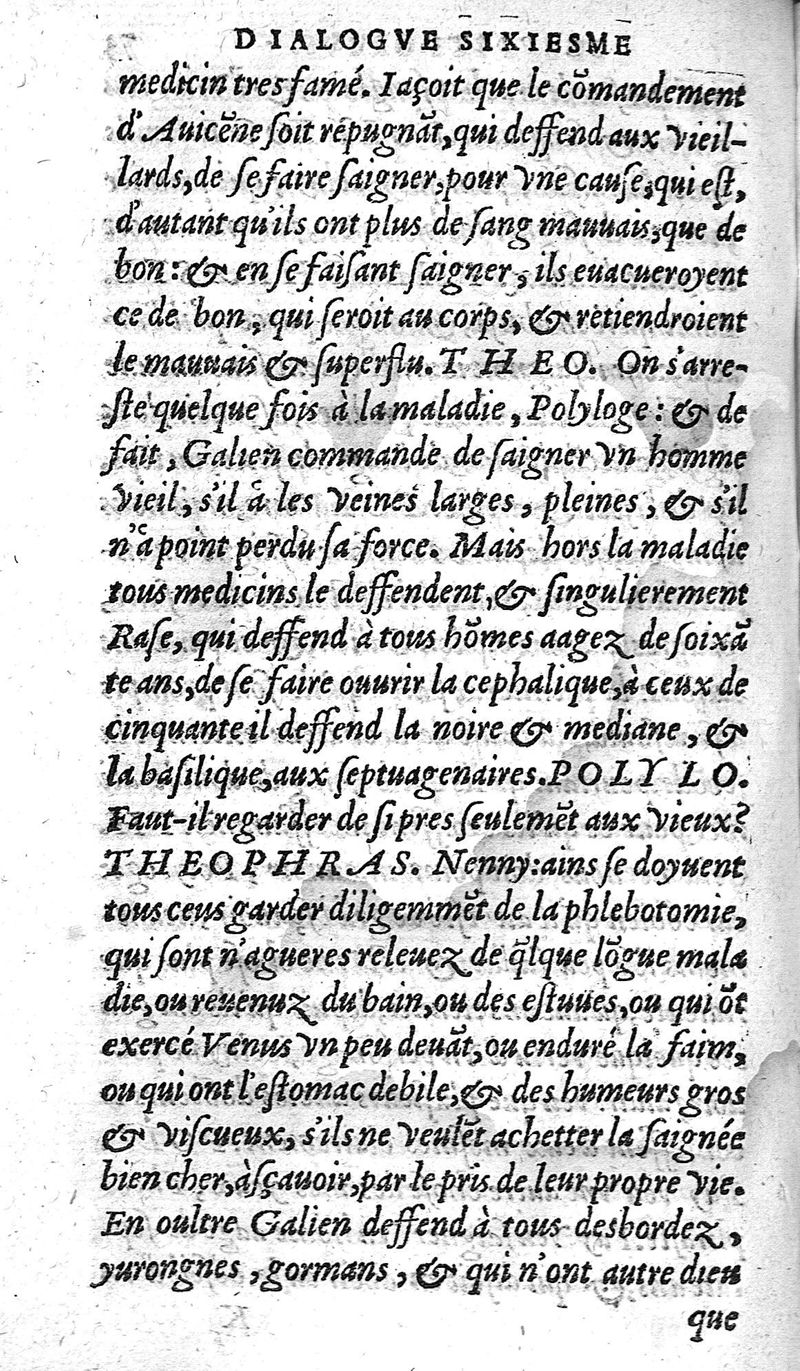 DIALOGVE SIXIESME
medicin tresfamé. Iaçoit que le cõmandement
d'Auicẽne ſoit repugnãt, qui deffend aux vieil-
lards, de ſe faire ſaigner, pour vne cauſe, qui eſt,
d'autant qu'ils ont plus de ſang mauuais, que de
bon : & en ſe faiſant ſaigner, ils euacueroyent
ce de bon, qui ſeroit au corps, & retiendroient
le mauuais & ſuperflu. THEO. On s'arre-
ſte quelque fois à la maladie, Polyloge : & de
fait, Galien commande de ſaigner vn homme
vieil, s'il à les veines larges, pleines, & s'il
n'à point perdu ſa force. Mais hors la maladie
tous medicins le deffendent, & ſingulierement
Raſe, qui deffend à tous hõmes aagez de ſoixã
te ans, de ſe faire ouurir la cephalique, à ceux de
cinquante il deffend la noire & mediane, &
la baſilique, aux ſeptuagenaires. POLYLO.
Faut-il regarder de ſi pres ſeulemẽt aux vieux?
THEOPHRAS. Nenny: ains ſe doyuent
tous ceus garder diligemmẽt de la phlebotomie,
qui ſont n'agueres releuez de q̃lque lõgue mala
die, ou reuenuz du bain, ou des eſtuues, ou qui õt
exercé Venus vn peu deuãt, ou enduré la faim,
ou qui ont l'eſtomac debile, & des humeurs gros
& viſcueux, s'ils ne veulẽt achetter la ſaignée
bien cher, à ſçauoir, par le pris de leur propre vie.
En oultre Galien deffend à tous desbordez,
yurongnes, gormans, & qui n'ont autre dieu
que